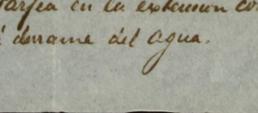 en la extension
derrame del agua.